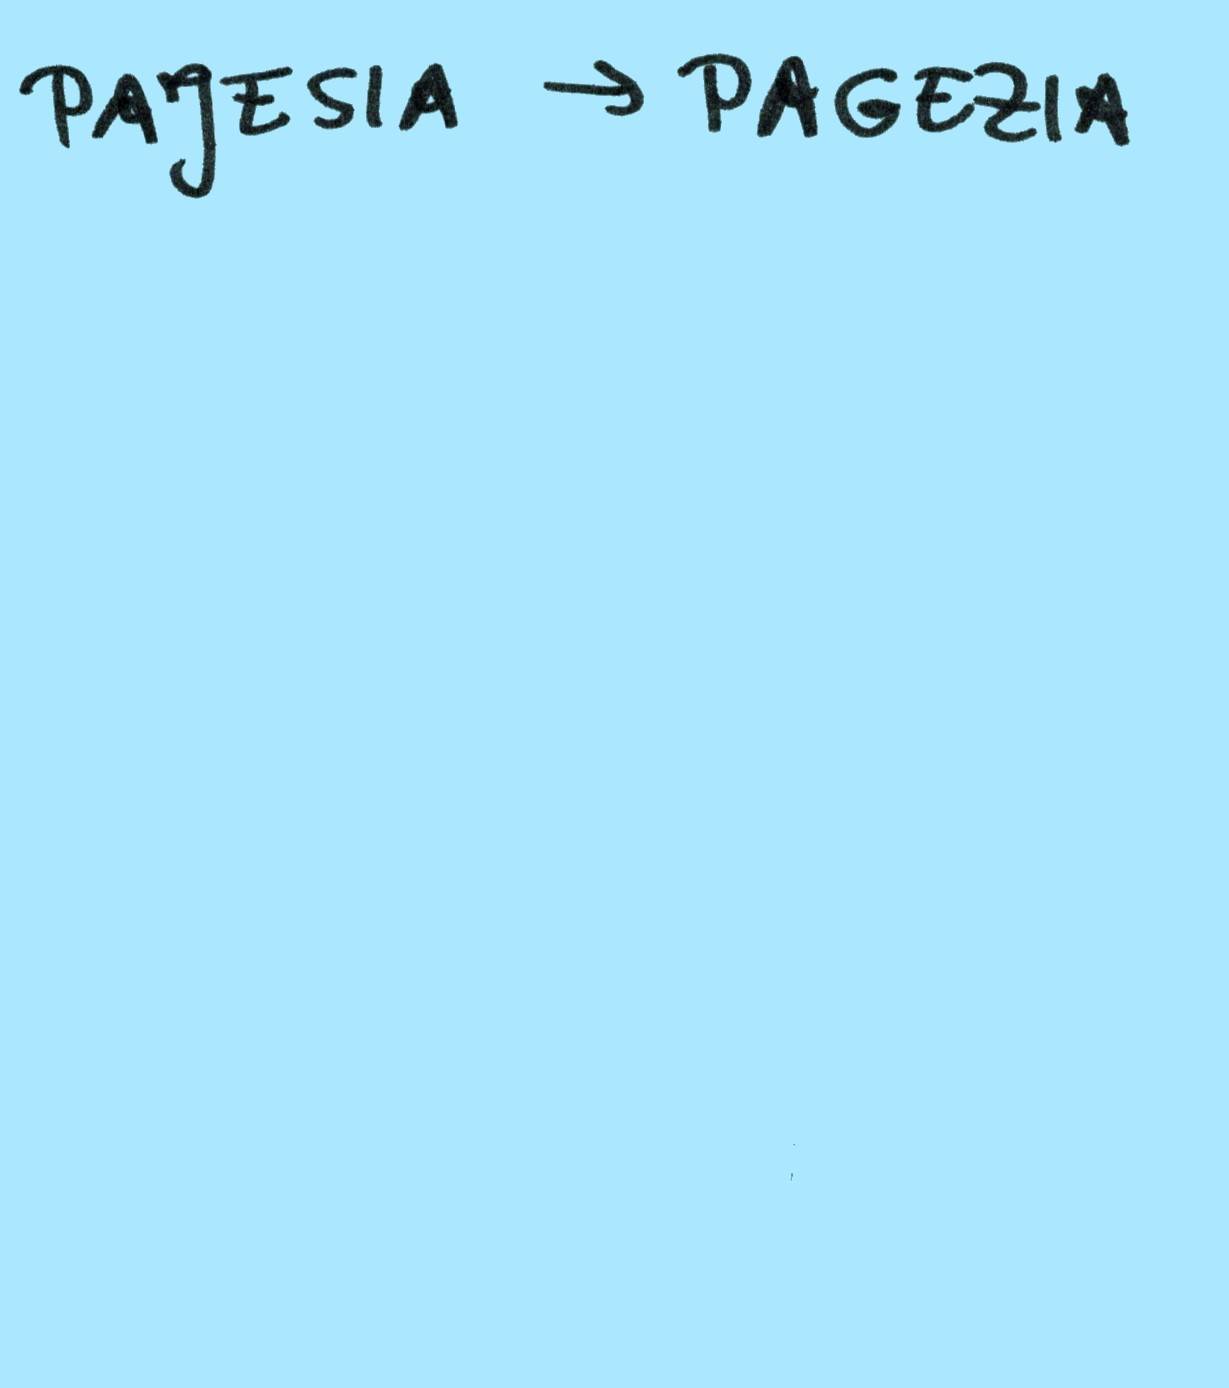 PAJESIA → PAGEZIA